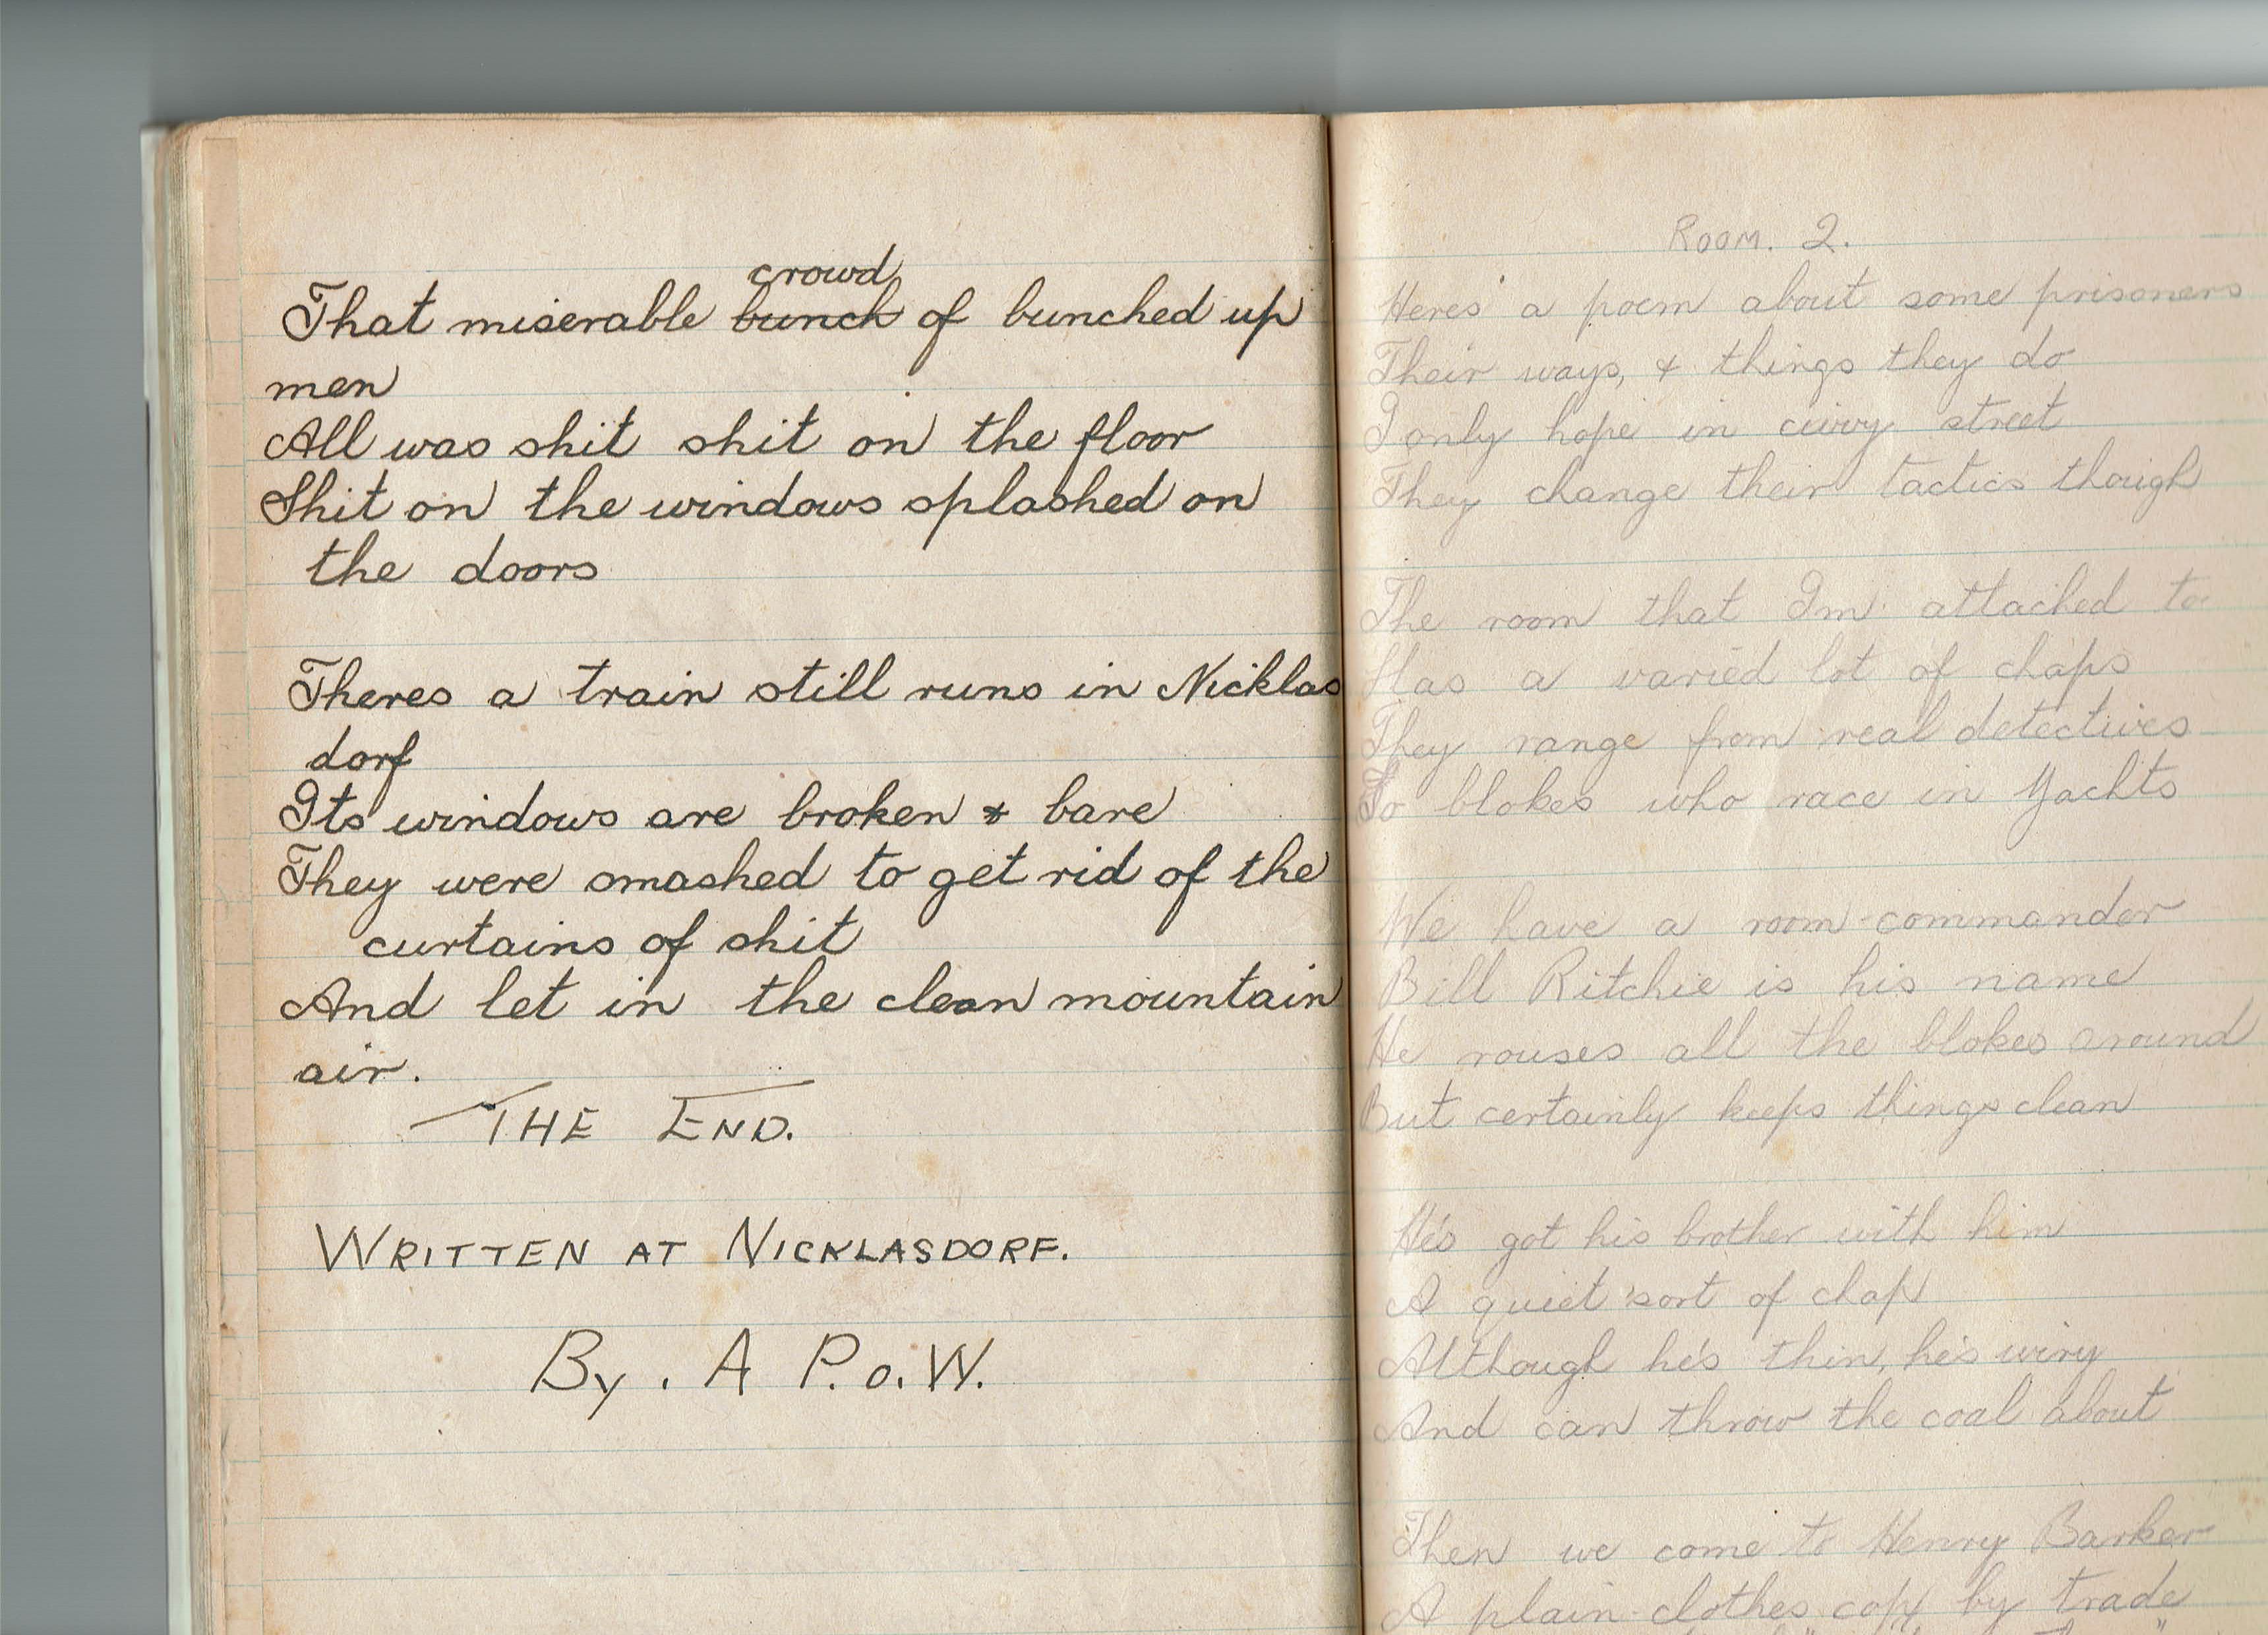 crowd
That miserable bunch of bunched up
men
All was shit shit on the floor
Shit on the windows splashed on
the doors
Theres a train still runs in Nicklas
dorf
Its windows are broken & bare
They were smashed to get rid of the
curtains of shit
And let in the clean mountain
air.
THE END.
WRITTEN AT NICKLASDORF.
By. A P.o.W.
ROOM. 2.
Heres' a poem about some prisoners
Their ways, & things they do
I only hope in civvy street
They change their tactics though
The room that Im attached to
Has a varied lot of chaps
They range from real detectives
To blokes who race in Yachts
We have a room-commander
Bill Ritchie is his name
He rouses all the blokes around
But certainly keeps things clean
He's got his brother with him
A quiet sort of chap
Although he's thin, he's wiry
And can throw the coal about
Then we come to Henry Barker
A plain-clothes copy by trade